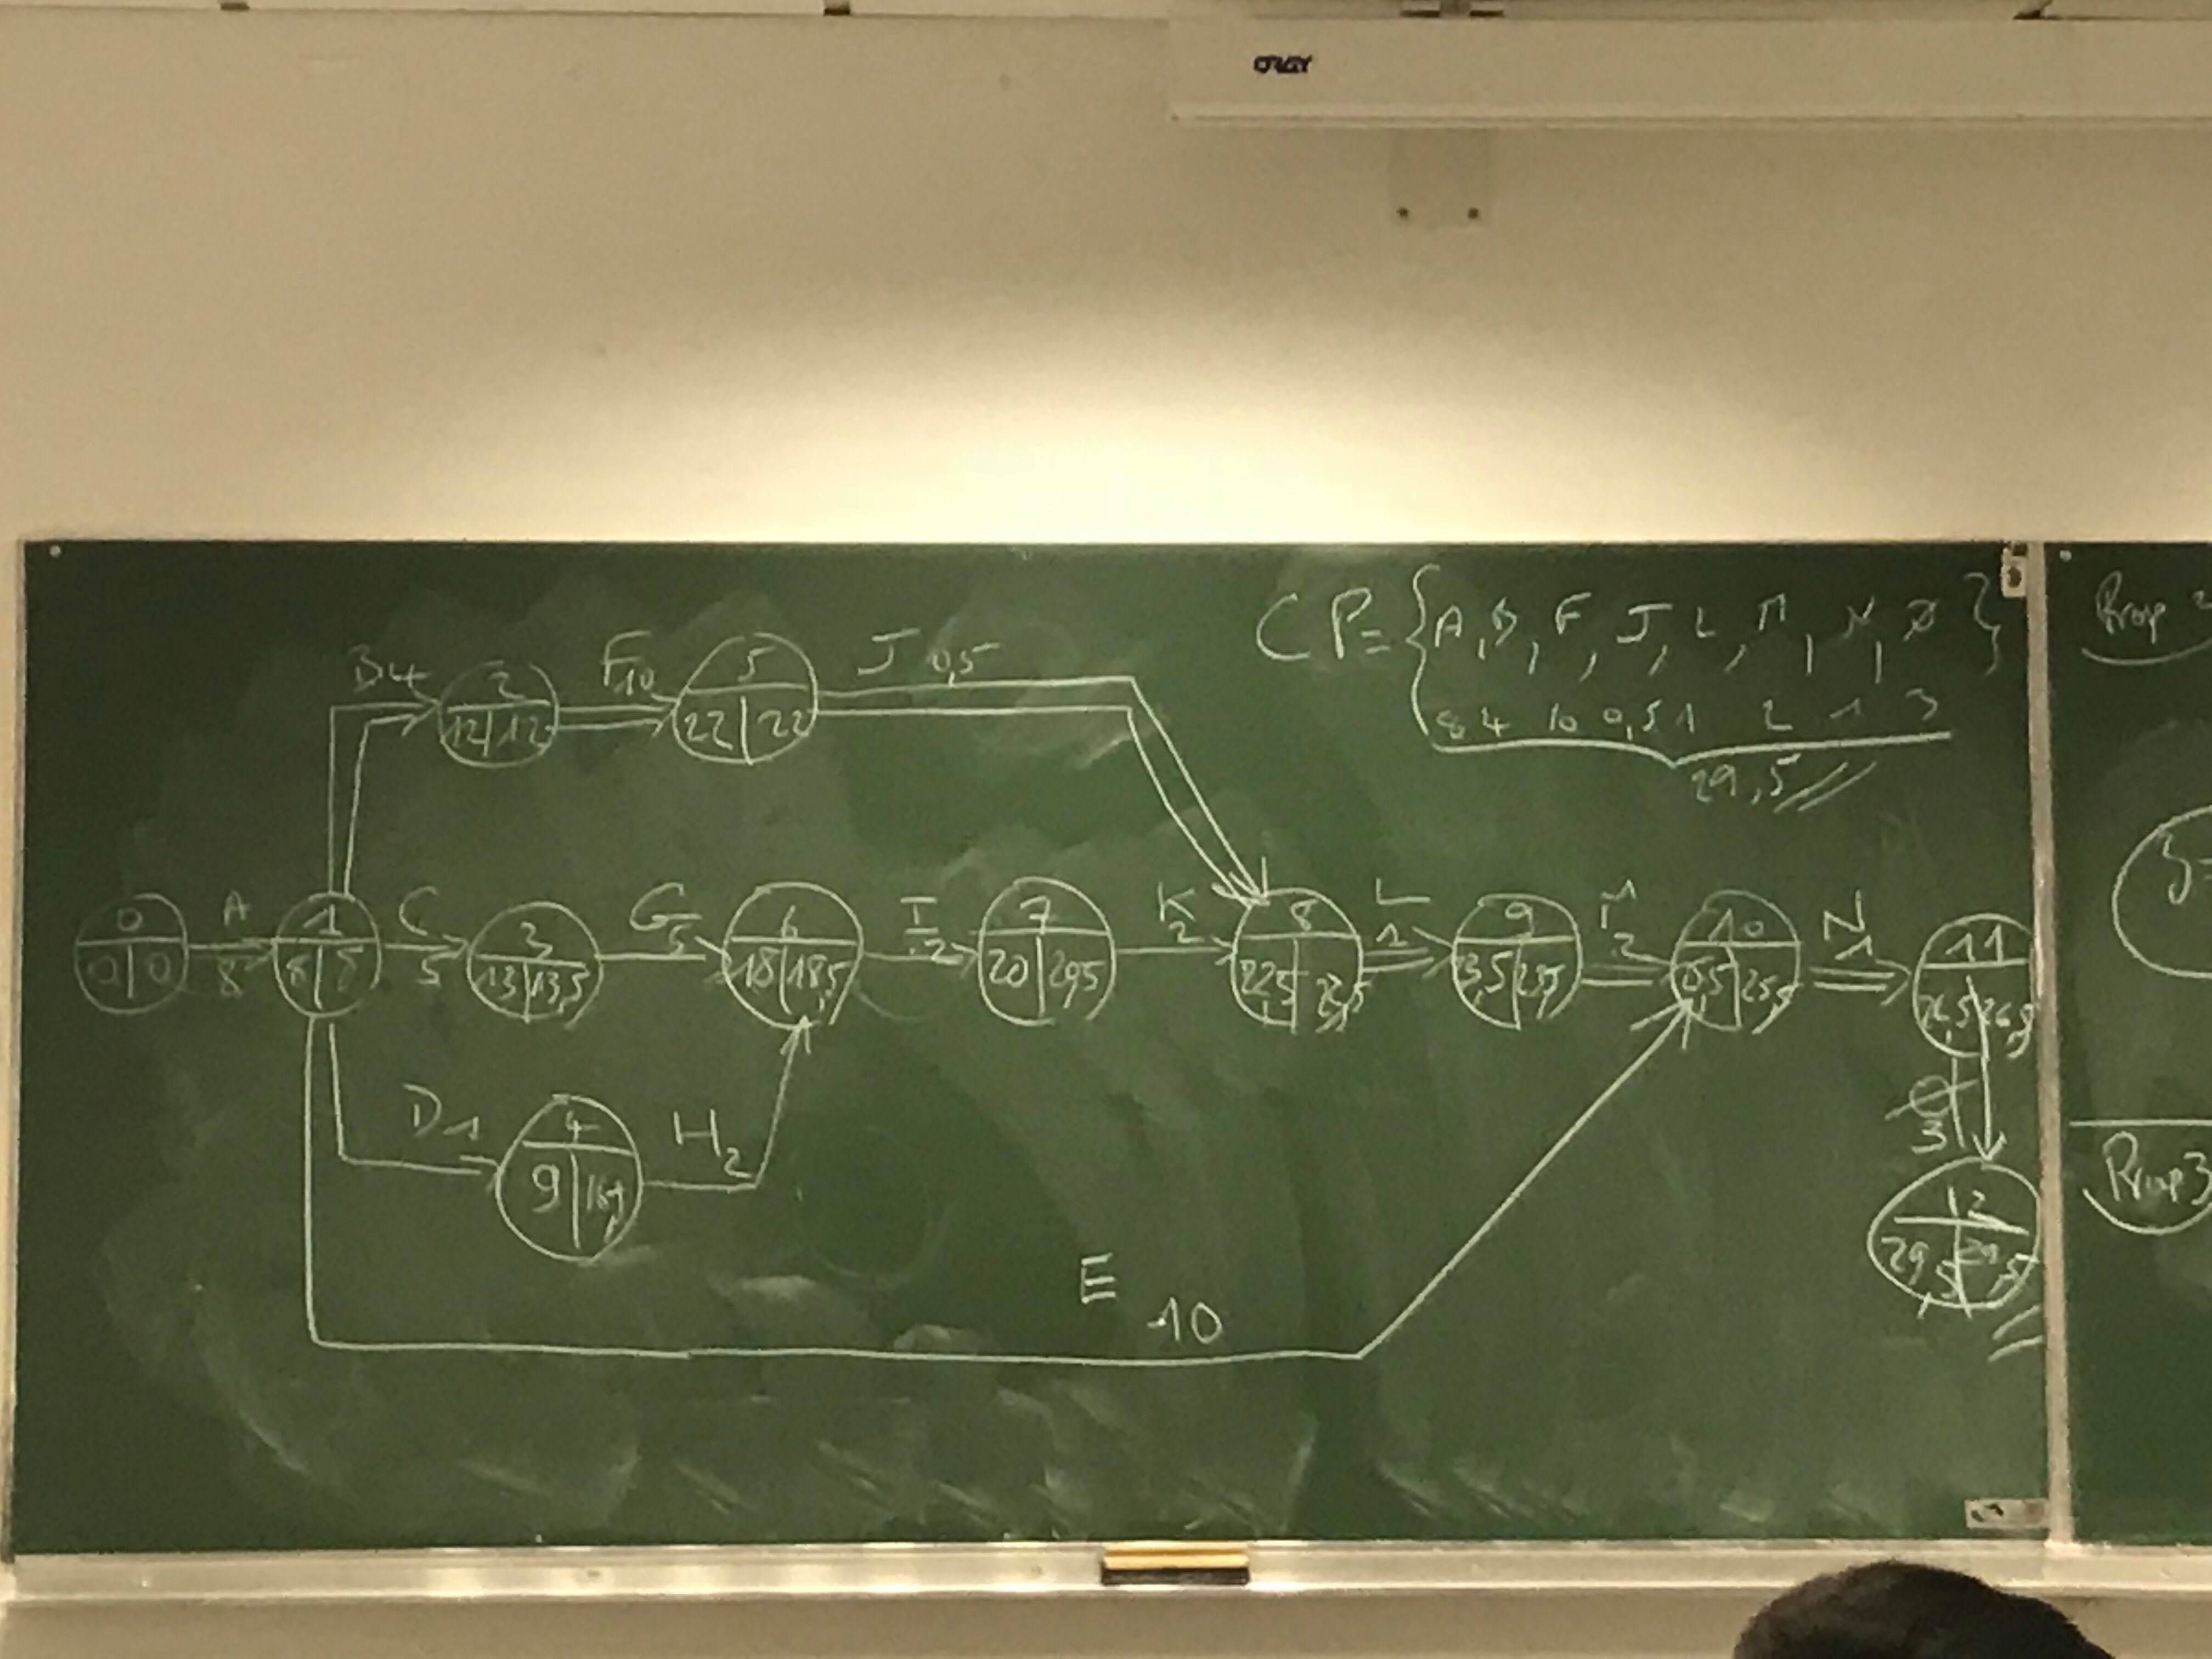 ORAY
CP = { A, B, F, J, L, M, N, Ø }
8 4 10 0,5 1 2 1 3
29,5
B 4
2
12 | 12
F 10
5
22 | 22
J 0,5
0
0 | 0
A
8
1
8 | 8
C
5
3
13 | 13,5
G
5
6
18 | 18,5
I
2
7
20 | 295
K
2
8
22,5
L
1
9
M
2
10
25,5
N
1
11
26,5 | 26,5
Ø
3
12
29,5 | 29,5
D 1
4
9
H 2
E
10
Prop 2
Prop 3